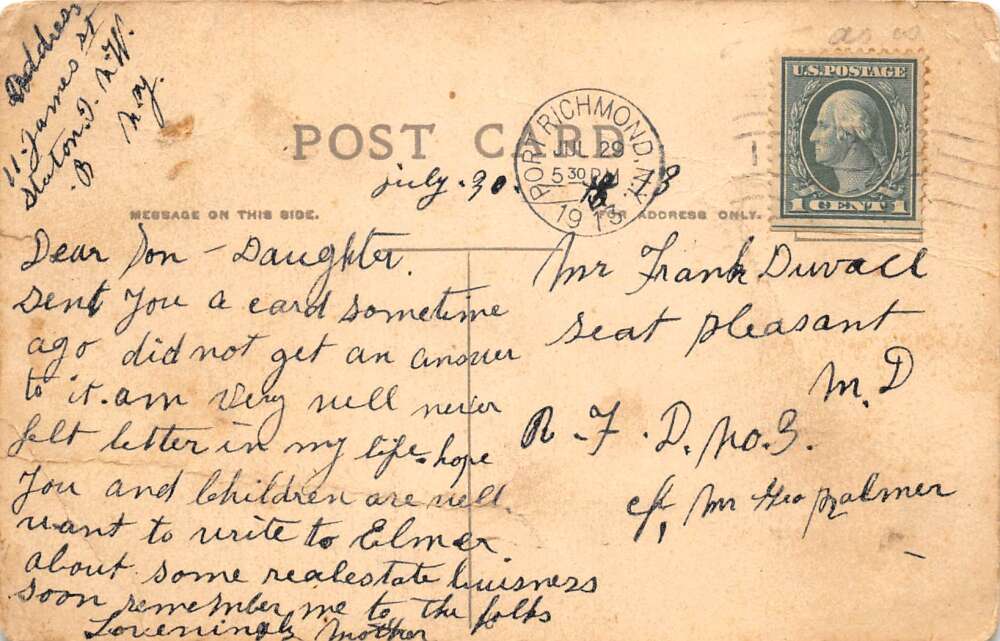 Address
11. James st
Staton. I. N.W.
B Nay.
as is
U.S. POSTAGE
1 CENT 1
POST CARD
PORT RICHMOND, N.Y.
JUL 29
5 30 PM
1913
July. 30. 13
MESSAGE ON THIS SIDE.
FOR ADDRESS ONLY.
Dear Son - Daughter.
Sent You a card sometime
ago did not get an answer
to it. am very well never
felt better in my life. hope
You and Children are well.
want to write to Elmer
about some realestate buisness
soon remember me to the folks
Loveningly Mother
Mr Frank Duvall
Seat pleasant
M.D
R. F. D. No. 3.
Mr Geo Palmer